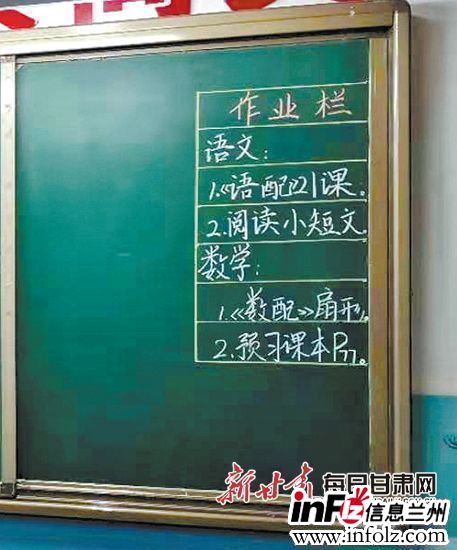 作业栏
语文:
1.《语配》21课。
2.阅读小短文
数学:
1.《数配》扇形。
2.预习课本P77。
新甘肃 每日甘肃网
infLZ 信息兰州
www.infolz.com